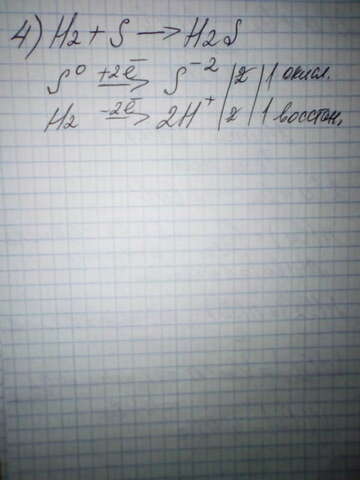 4) H2 + S → H2S
S⁰ +2ē → S⁻² | 2 | 1 окисл.
H2 -2ē → 2H⁺ | 2 | 1 восстан.